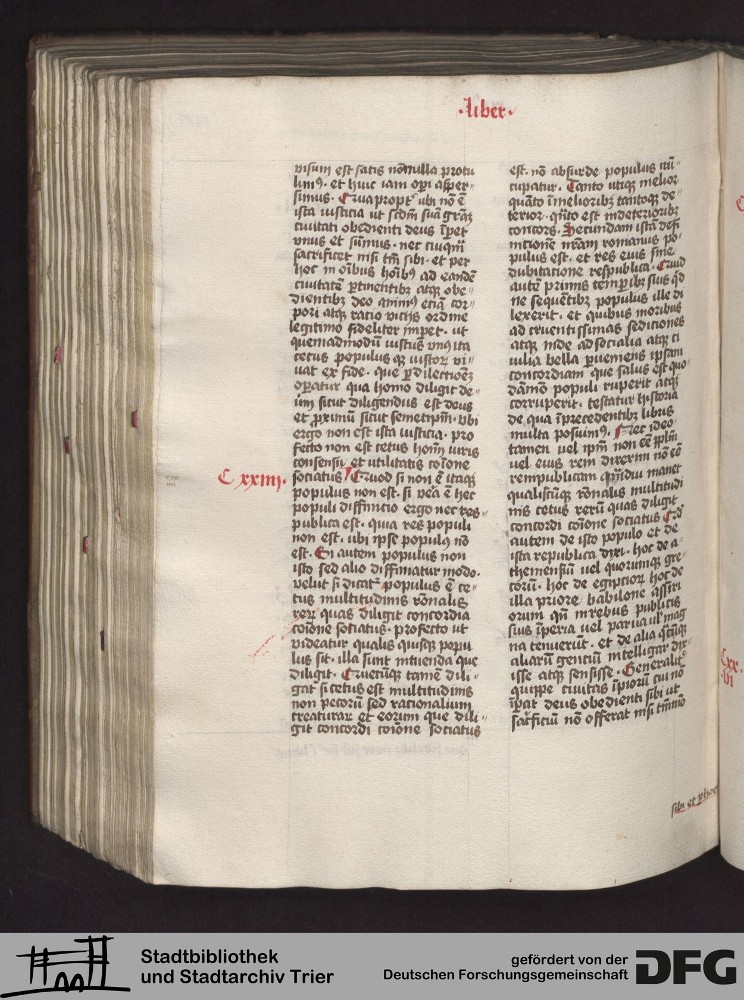 ·liber·
visum est satis nōnulla protu
limꝰ· et huic iam oꝑi asper-
simus· Quapropt̄ ubi nō ē
ista iusticia ut scd̄m suā grāʒ
civitati obedienti deus īpet
vnus et sūmus· nec cuiqm̄
sacrificet nisi tm̄ sibi· et per
hoc in oībus hoībꝰ ad eandē
civitatē ꝑtinentibʒ atqʒ obe-
dientibʒ deo animꝰ etiā cor-
pori atqʒ ratio viciis ordine
legitimo fideliter imꝑet· ut
quemadmodū iustus vnꝰ ita
cetus populus qʒ iustorꝝ vi-
vat ex fide· que ꝑ dilectionēʒ
oꝑatur qua homo diligit de-
um sicut diligendus est deus
et ꝓximū sicut semetip̄m· vbi
ergo non est ista iusticia· pro
fecto non est cetus hoīm iuris
consensu et utilitatis cōīone
C xxiiii·
sociatus Quod si non ē utiqʒ
populus non est· si vera ē hec
populi diffinicio ergo nec res-
publica est· quia res populi
non est· ubi ipse populꝰ nō
est· Si autem populus non
isto sed alio diffiniatur modo·
velut si dicat̄ populus ē ce-
tus multitudinis rōnalis
rerꝝ quas diligit concordia
cōīone sociatus· profecto ut
videatur qualis quisqʒ popu
lus sit· illa sunt intuenda que
diligit· Quecūqʒ tamē dili-
gat si cetus est multitudinis
non pecorū sed rationalium
creaturarꝝ et eorum que dili-
git concordi cōīone sociatus
est· nō absurde populus nū-
cupatur· Tanto utiqʒ melior
quāto ī melioribʒ tantoqʒ de-
terior· qn̄to est in deterioribʒ
concors· Secundam istā deffi
nicionē nr̄am romanus po-
pulus est· et res eius sine
dubitacione respublica· Quid
autē primis temꝑibʒ siue qd̄
ne sequētibʒ populus ille di
lexerit· et quibus moribus
ad cruentissimas sediciones
atqʒ inde ad socialia atqʒ ci
vilia bella ꝑveniens ipsam
concordiam que salus est quo-
dāmō populi ruperit atqʒ
corruperit· testatur historia
de qua ī precedentibꝰ libris
multa posuimꝰ· Nec ideo
tamen vel ip̄m non eē pplm̄
vel eius rem dixerim nō eē
rempublicam qm̄diu manet
qualiscūqʒ rōnalis multitudi
nis cetus rerū quas diligit
concordi cōīone sociatus Qd̄
autem de isto populo et de
ista republica dixi· hoc de a-
themensiū vel quorumqʒ gre-
corū· hoc de egipciorꝝ hoc de
illa priore babilone assiri
orum qn̄ in rebus publicis
suis īperia vel parua vl̄ mag
na tenuerūt· et de alia q̄cūqʒ
aliarū gentiū intelligar dix-
isse atqʒ sensisse· Generalit̄
quippe civitas īpiorū cui nō
īꝑat deus obedienti sibi ut
sac̄ficiū nō offerat nisi tm̄mō
sibi et ꝑ hoc
xx·
vi
Stadtbibliothek
und Stadtarchiv Trier
gefördert von der
Deutschen Forschungsgemeinschaft
DFG